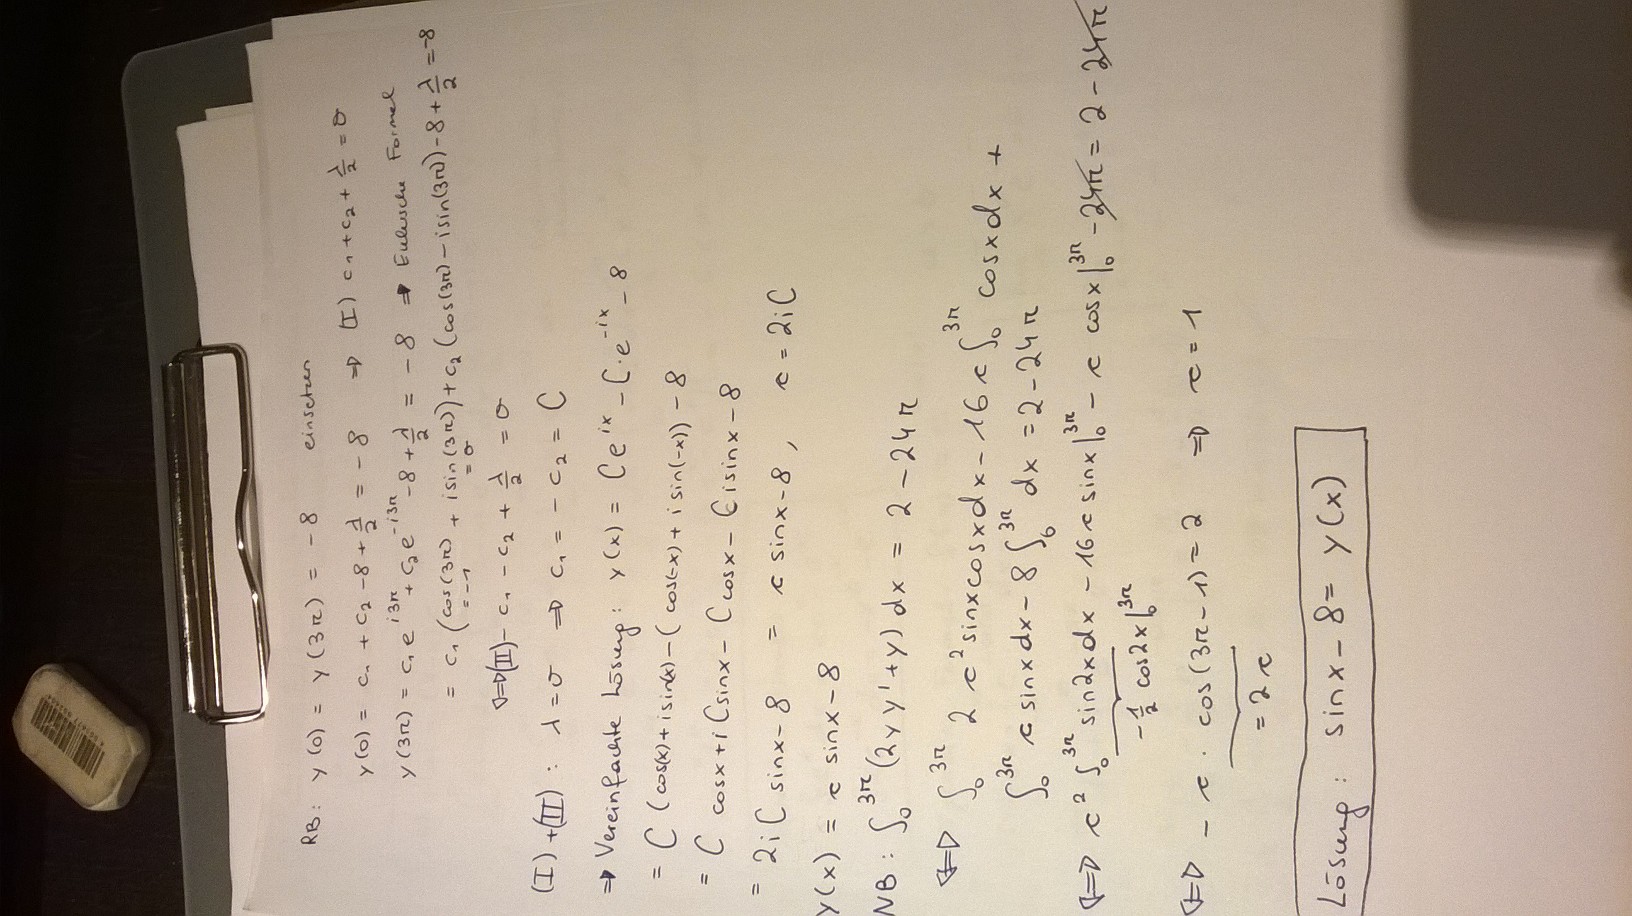 RB: y(0) = y(3π) = -8 einsetzen
y(0) = c₁ + c₂ - 8 + λ/2 = -8 ⇒ (I) c₁ + c₂ + λ/2 = 0
y(3π) = c₁e^{i3π} + c₂e^{-i3π} - 8 + λ/2 = -8 ⇒ Eulersche Formel
= c₁(cos(3π) + i sin(3π)) + c₂(cos(3π) - i sin(3π)) - 8 + λ/2 = -8
= -1 = 0
⇔ (II) - c₁ - c₂ + λ/2 = 0
(I) + (II): λ = 0 ⇒ c₁ = - c₂ = C
⇒ Vereinfachte Lösung: y(x) = Ce^{ix} - C·e^{-ix} - 8
= C (cos(x) + i sin(x) - (cos(-x) + i sin(-x)) - 8
= C cosx + i C sinx - C cosx - C i sinx - 8
= 2iC sinx - 8 = c sinx - 8, c = 2iC
y(x) = c sinx - 8
NB: ∫₀^{3π} (2yy' + y) dx = 2 - 24π
⇔ ∫₀^{3π} 2c² sinx cosx dx - 16c ∫₀^{3π} cosx dx +
∫₀^{3π} c sinx dx - 8 ∫₀^{3π} dx = 2 - 24π
⇔ c² ∫₀^{3π} sin2x dx - 16c sinx |₀^{3π} - c cosx |₀^{3π} - 24π = 2 - 24π
-1/2 cos2x |₀^{3π}
⇔ - c · cos(3π - 1) = 2 ⇒ c = 1
= 2c
Lösung: sinx - 8 = y(x)